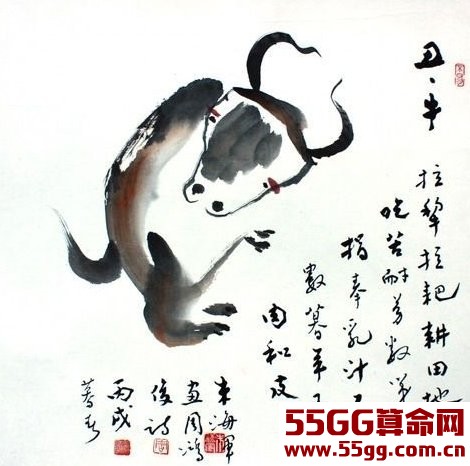 丑、牛
拉犁拉耙耕田地
吃苦耐劳数第
指奉乳汁不
数暮年
肉和皮
朱海辉
画周鸿
俊诗
丙戌
暮春
55GG算命网
www.55gg.com.cn